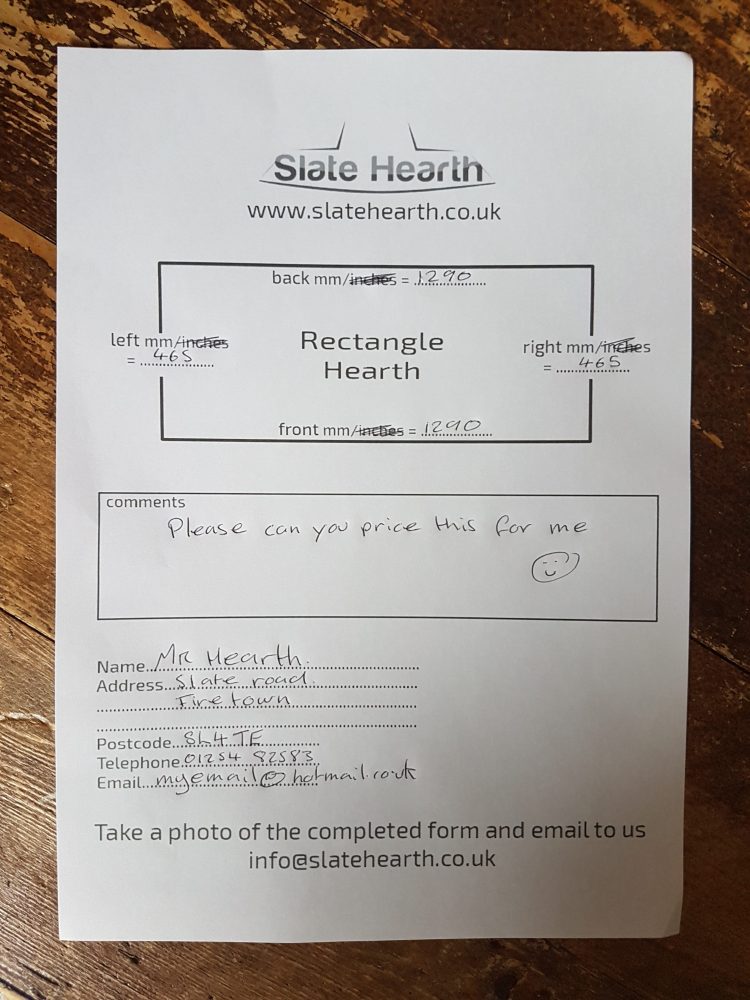 Slate Hearth
www.slatehearth.co.uk
back mm/inches = 1290
left mm/inches
= 465
Rectangle
Hearth
right mm/inches
= 465
front mm/inches = 1290
comments
Please can you price this for me
Name...MR Hearth
Address...Slate road
Firetown
Postcode...SL4 TE
Telephone 01254 82583
Email...myemail@hotmail.co.uk
Take a photo of the completed form and email to us
info@slatehearth.co.uk